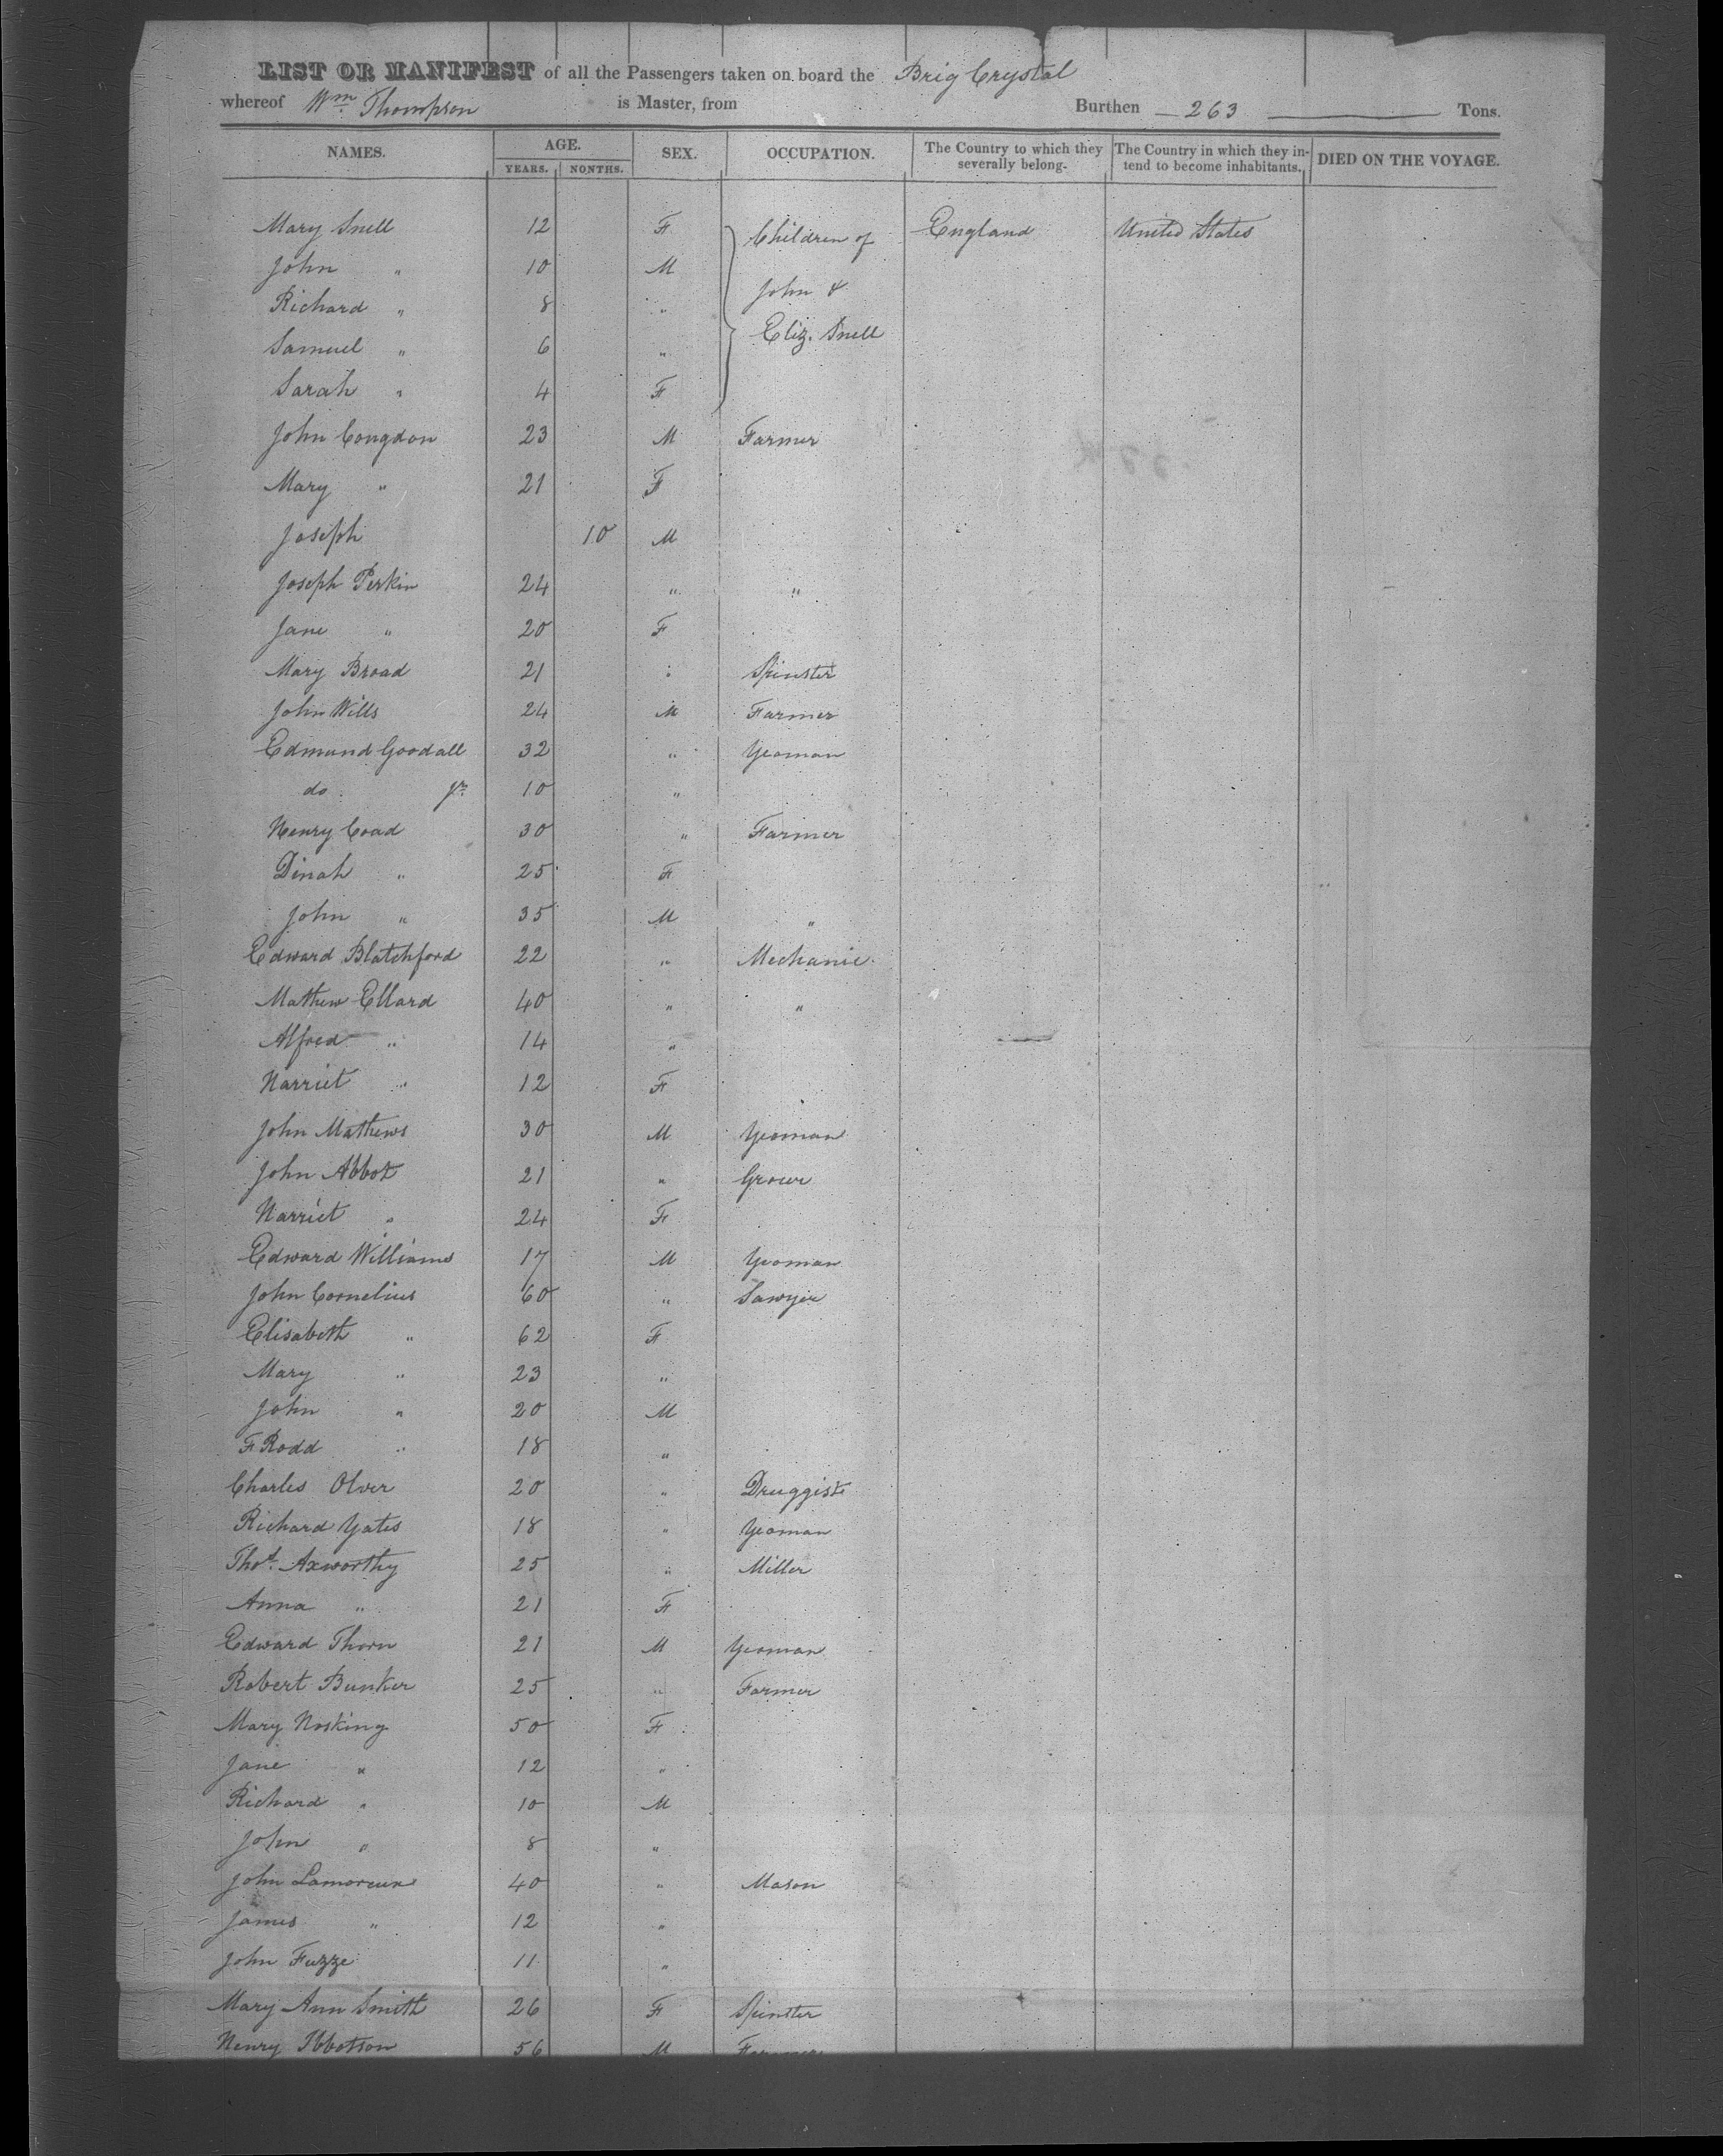 LIST OR MANIFEST of all the Passengers taken on board the Brig Crystal
whereof Wm Thompson is Master, from Burthen 263 Tons.
NAMES. AGE. YEARS. NONTHS. SEX. OCCUPATION. The Country to which they severally belong. The Country in which they intend to become inhabitants. DIED ON THE VOYAGE.
Mary Snell 12 F Children of England United States
John " 10 M
Richard " 8 " John &
Samuel " 6 " Eliz. Snell
Sarah " 4 F
John Congdon 23 M Farmer
Mary " 21 F
Joseph 10 M
Joseph Perkin 24 " "
Jane " 20 F
Mary Broad 21 " Spinster
John Wills 24 M Farmer
Edmund Goodall 32 " Yeoman
do Jr. 10 "
Henry Coad 30 " Farmer
Dinah " 25 F
John " 35 M "
Edward Blatchford 22 " Mechanic
Mathew Ellard 40 " "
Alfred " 14 "
Harriet " 12 F
John Mathews 30 M Yeoman
John Abbot 21 " Grocer
Harriet " 24 F
Edward Williams 17 M Yeoman
John Cornelius 60 " Sawyer
Elisabeth " 62 F
Mary " 23 "
John " 20 M
F Rodd " 18 "
Charles Olver 20 " Druggist
Richard Yates 18 " Yeoman
Thos. Axworthy 25 " Miller
Anna " 21 F
Edward Thorn 21 M Yeoman
Robert Bunker 25 " Farmer
Mary Hosking 50 F
Jane " 12 "
Richard " 10 M
John " 8 "
John Lamoreux 40 " Mason
James " 12 "
John Fuzze 11 "
Mary Ann Smith 26 F Spinster
Henry Ibbotson 56 M Farmer